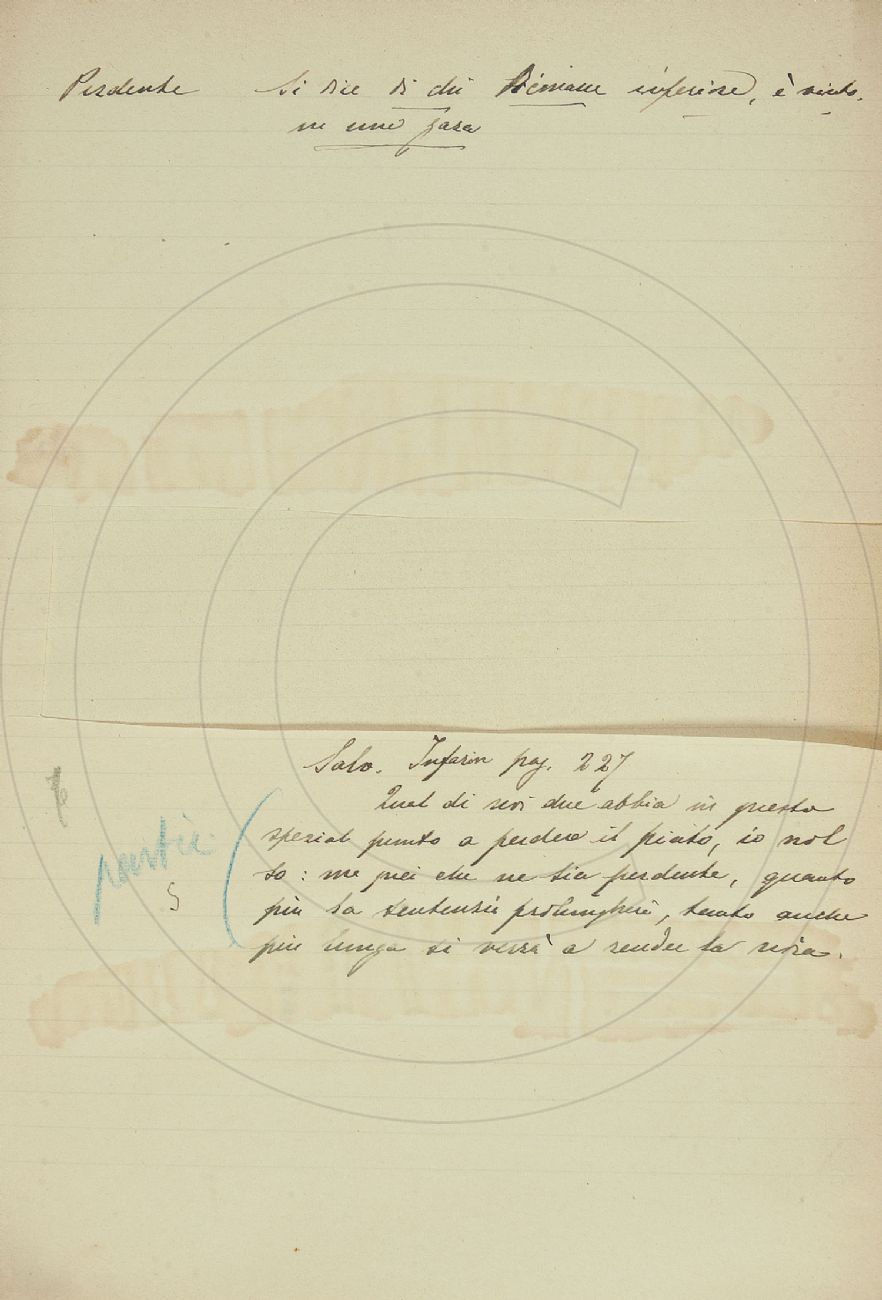 Perdente Si dice di chi rimane inferiore, è vinto
in una gara
Salv. Infarin pag. 227
Qual di voi due abbia in questo
spezial punto a perdere il piato, io nol
so: ma poi che ne sia perdente, quanto
più la sentenzia prolungherà, tanto anche
più lunga si verrà a render la
partic.
5